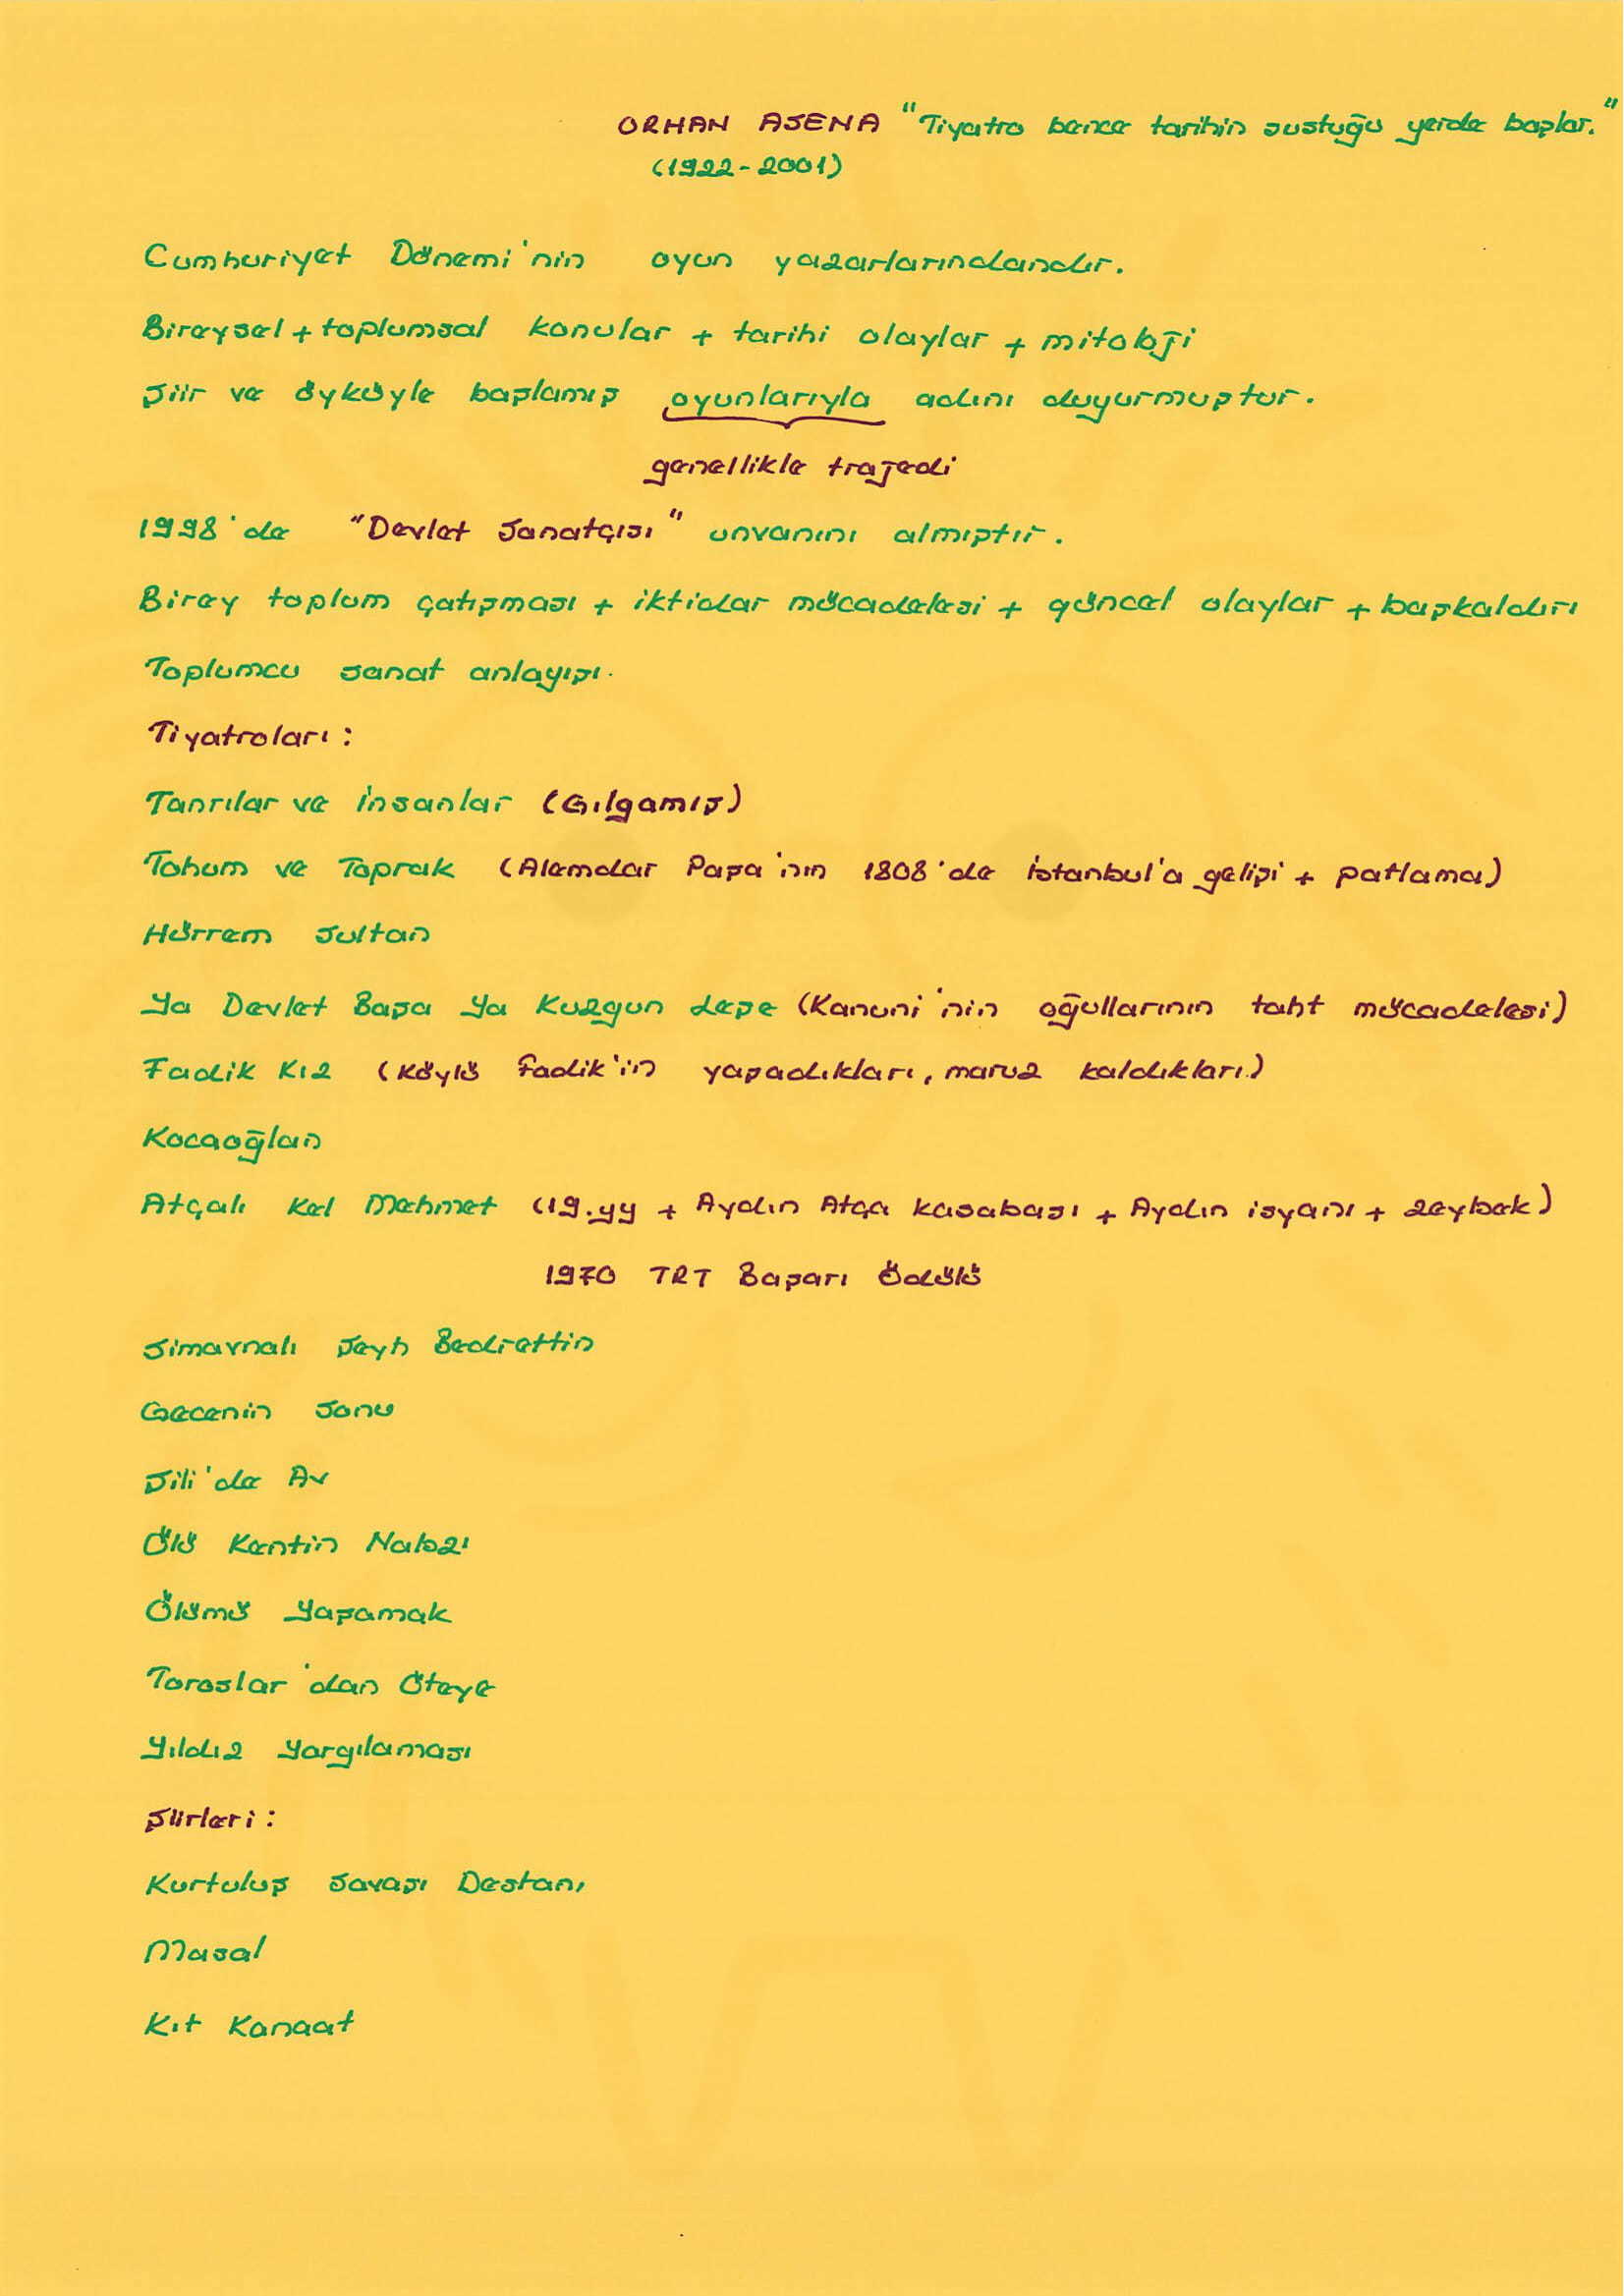 ORHAN ASENA "Tiyatro bence tarihin sustuğu yerde başlar."
(1922-2001)
Cumhuriyet Dönemi'nin oyun yazarlarındandır.
Bireysel + toplumsal konular + tarihi olaylar + mitoloji
Şiir ve öyküyle başlamış oyunlarıyla adını duyurmuştur.
genellikle trajedi
1998'de "Devlet Sanatçısı" unvanını almıştır.
Birey toplum çatışması + iktidar mücadelesi + güncel olaylar + başkaldırı
Toplumcu sanat anlayışı.
Tiyatroları:
Tanrılar ve İnsanlar (Gılgamış)
Tohum ve Toprak (Alemdar Paşa'nın 1808'de İstanbul'a gelişi + patlama)
Hürrem Sultan
Ya Devlet Başa Ya Kuzgun Leşe (Kanuni'nin oğullarının taht mücadelesi)
Fadik Kız (Köylü Fadik'in yaşadıkları, maruz kaldıkları.)
Kocaoğlan
Atçalı Kel Mehmet (19.yy + Aydın Atça kasabası + Aydın isyanı + zeybek)
1970 TRT Başarı Ödülü
Simavnalı Şeyh Bedrettin
Gecenin Sonu
Şili'de Av
Ölü Kentin Nabzı
Ölümü Yaşamak
Toroslar'dan Öteye
Yıldız Yargılaması
Şiirleri:
Kurtuluş Savaşı Destanı
Masal
Kıt Kanaat